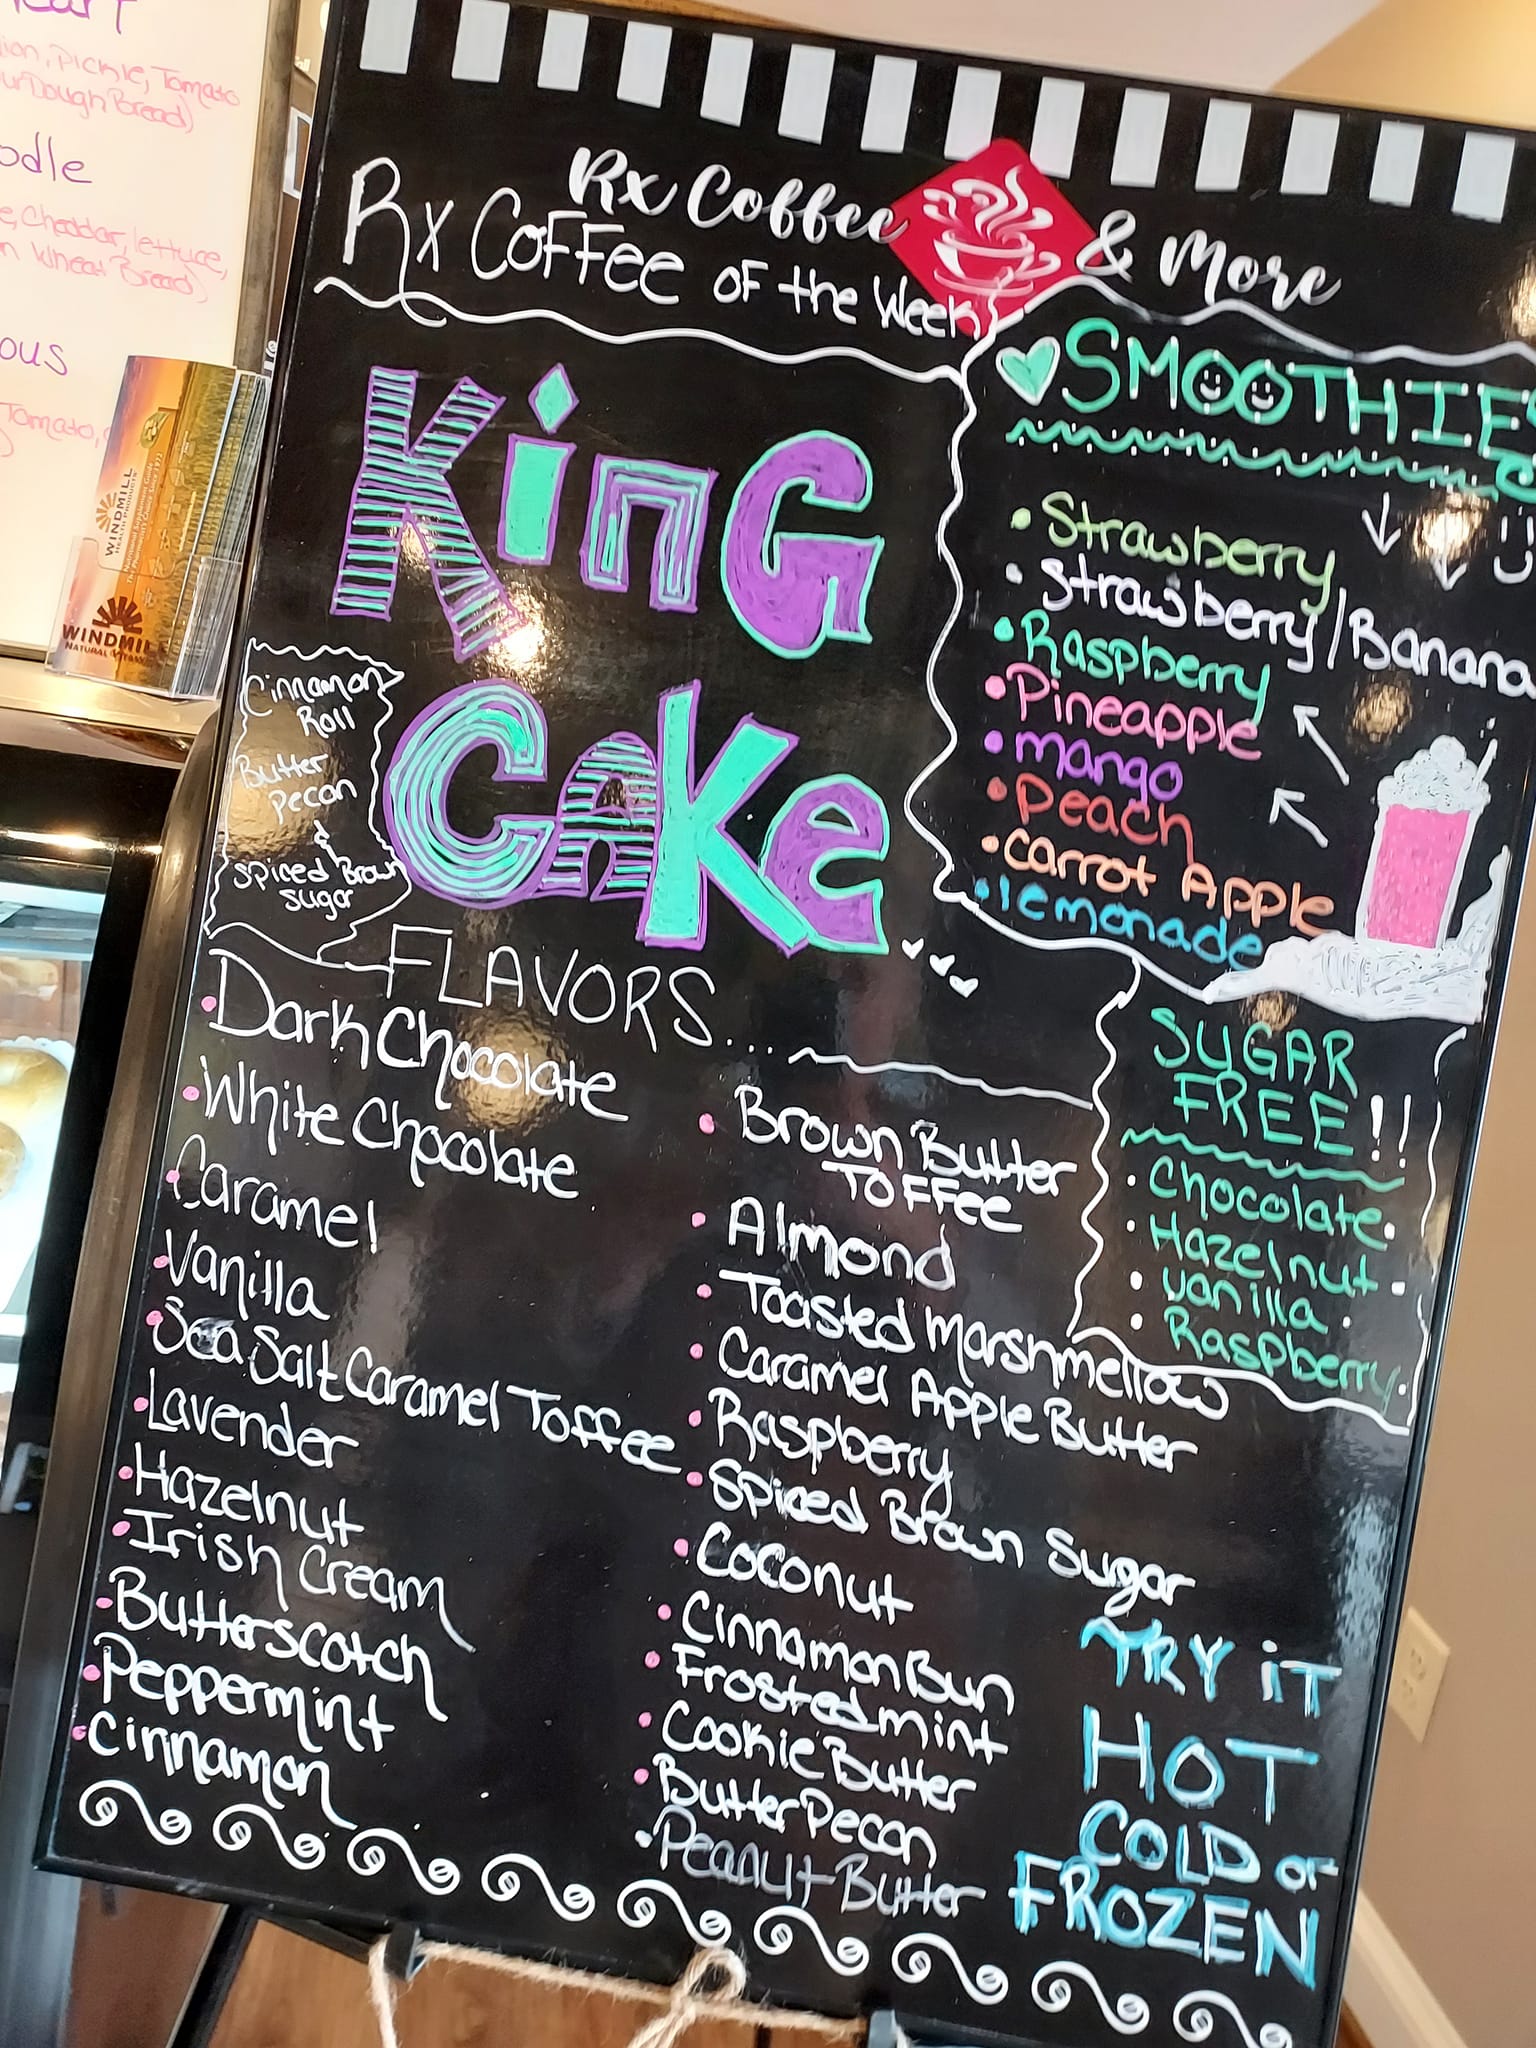 ion, Pickle, Tomato
urDough Bread)
odle
e, Cheddar, lettuce,
n Wheat Bread)
ous
Tomato,
WINDMILL
HEALTH PRODUCTS
Nutritional Supplement Guide
WINDMILL
Rx Coffee & More
Rx Coffee of the Week
King
Cake
Cinnamon
Roll
Butter
Pecan
&
Spiced Brown
Sugar
SMOOTHIES
• Strawberry
• Strawberry/Banana
• Raspberry
• Pineapple
• mango
• Peach
• Carrot Apple
• lemonade
FLAVORS...
• Dark Chocolate
• White Chocolate
• Caramel
• Vanilla
• Sea Salt Caramel Toffee
• Lavender
• Hazelnut
• Irish Cream
• Butterscotch
• Peppermint
• Cinnamon
• Brown Butter
Toffee
• Almond
• Toasted Marshmellow
• Caramel Apple Butter
• Raspberry
• Spiced Brown Sugar
• Coconut
• Cinnamon Bun
• Frosted mint
• Cookie Butter
• Butter Pecan
• Peanut Butter
SUGAR
FREE!!
• Chocolate •
• Hazelnut •
• Vanilla •
• Raspberry •
TRY iT
HOT
COLD or
FROZEN